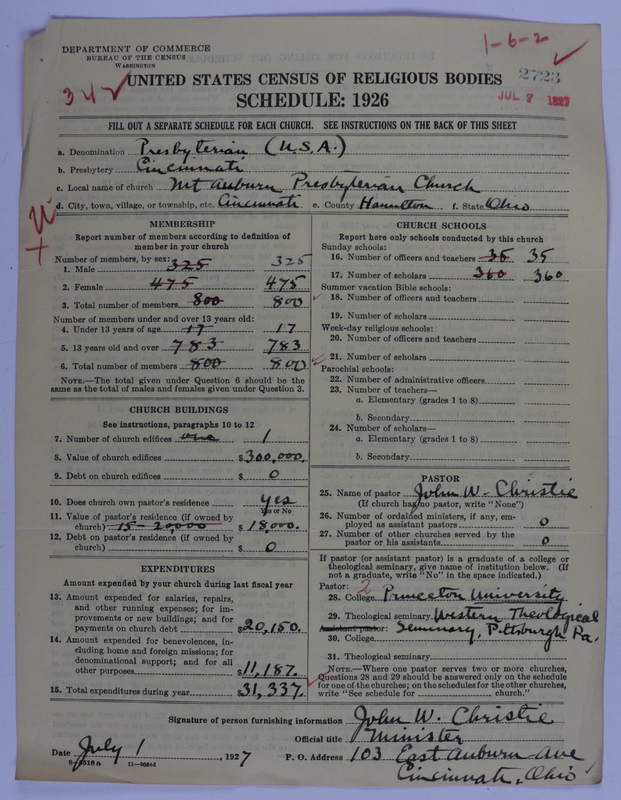 DEPARTMENT OF COMMERCE
BUREAU OF THE CENSUS
WASHINGTON
1-6-2
342
UNITED STATES CENSUS OF RELIGIOUS BODIES
2723
SCHEDULE: 1926
JUL 7 1927
FILL OUT A SEPARATE SCHEDULE FOR EACH CHURCH. SEE INSTRUCTIONS ON THE BACK OF THIS SHEET
a. Denomination Presbyterian (U.S.A.)
b. Presbytery Cincinnati
c. Local name of church Mt Auburn Presbyterian Church
d. City, town, village, or township, etc. Cincinnati e. County Hamilton f. State Ohio
MEMBERSHIP
Report number of members according to definition of
member in your church
Number of members, by sex:
1. Male 325 325
2. Female 475 475
3. Total number of members 800 800
Number of members under and over 13 years old:
4. Under 13 years of age 17 17
5. 13 years old and over 783 783
6. Total number of members 800 800
NOTE.—The total given under Question 6 should be the
same as the total of males and females given under Question 3.
CHURCH BUILDINGS
See instructions, paragraphs 10 to 12
7. Number of church edifices one 1
8. Value of church edifices $300,000.
9. Debt on church edifices $ 0
10. Does church own pastor's residence Yes
Yes or No
11. Value of pastor's residence (if owned by
church) 15-20,000 $18,000.
12. Debt on pastor's residence (if owned by
church) $ 0
EXPENDITURES
Amount expended by your church during last fiscal year
13. Amount expended for salaries, repairs,
and other running expenses; for im-
provements or new buildings; and for
payments on church debt $20,150.
14. Amount expended for benevolences, in-
cluding home and foreign missions; for
denominational support; and for all
other purposes $11,187.
15. Total expenditures during year $31,337.
CHURCH SCHOOLS
Report here only schools conducted by this church
Sunday schools:
16. Number of officers and teachers 35 35
17. Number of scholars 360 360
Summer vacation Bible schools:
18. Number of officers and teachers
19. Number of scholars
Week-day religious schools:
20. Number of officers and teachers
21. Number of scholars
Parochial schools:
22. Number of administrative officers
23. Number of teachers—
a. Elementary (grades 1 to 8)
b. Secondary
24. Number of scholars—
a. Elementary (grades 1 to 8)
b. Secondary
PASTOR
25. Name of pastor John W. Christie
(If church has no pastor, write "None")
26. Number of ordained ministers, if any, em-
ployed as assistant pastors 0
27. Number of other churches served by the
pastor or his assistants 0
If pastor (or assistant pastor) is a graduate of a college or
theological seminary, give name of institution below. (If
not a graduate, write "No" in the space indicated.)
Pastor: 2
28. College Princeton University
29. Theological seminary Western Theological
Assistant pastor: Seminary, Pittsburgh Pa.
30. College
31. Theological seminary
NOTE.—Where one pastor serves two or more churches,
Questions 28 and 29 should be answered only on the schedule
for one of the churches; on the schedules for the other churches,
write "See schedule for church."
Signature of person furnishing information John W. Christie
Official title Minister
Date July 1, 1927 P. O. Address 103 East Auburn Ave
8-5518a 11-9084d Cincinnati, Ohio